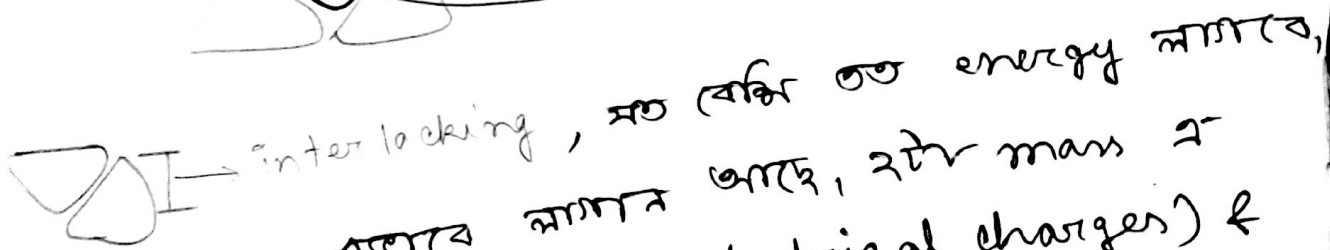 → interlocking, যত বেশি তত energy লাগবে,
লাগান আছে, ২টা mass এ
charges) &